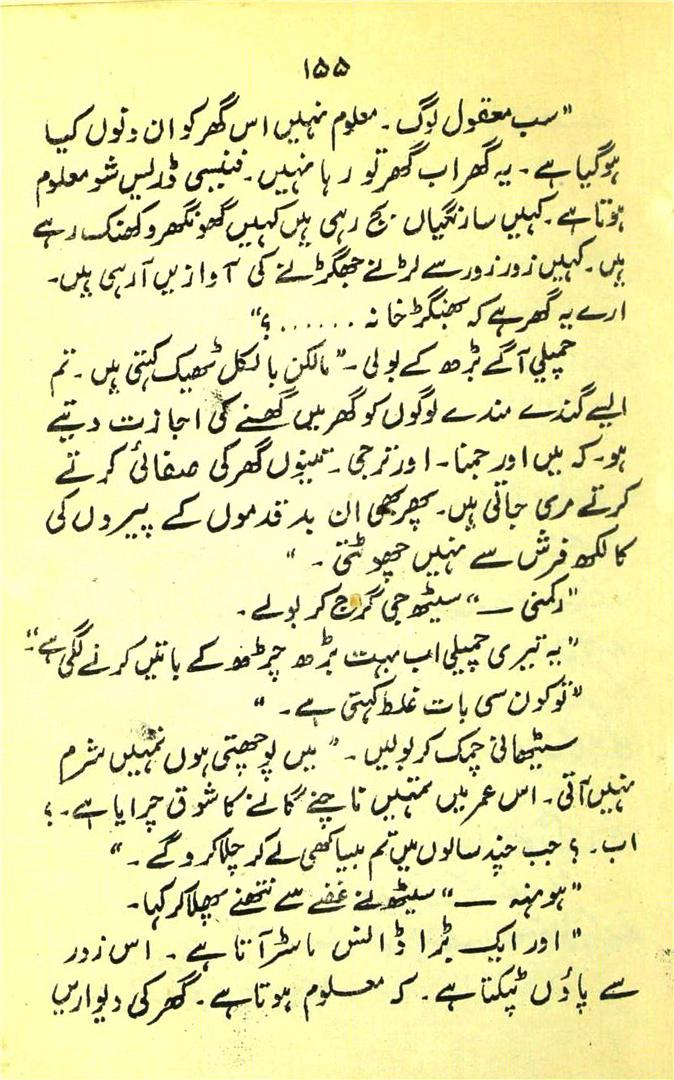 ۱۵۵
"سب معقول لوگ ۔ معلوم نہیں اس گھر کو ان دنوں کیا
ہو گیا ہے ۔ یہ گھر اب گھر تو رہا نہیں ۔ فینسی ڈریس شو معلوم
ہوتا ہے ۔ کہیں سارنگیاں بج رہی ہیں کہیں گھونگھرو کھنک رہے
ہیں ۔ کہیں زور زور سے لڑنے جھگڑنے کی آوازیں آ رہی ہیں ۔
ارے یہ گھر ہے کہ بھنگڑ خانہ ۔۔۔۔۔۔ ؟"
چمپلی آگے بڑھ کے بولی ۔ "مالکن بالکل ٹھیک کہتی ہیں ۔ تم
ایسے گندے مندے لوگوں کو گھر میں گھسنے کی اجازت دیتے
ہو ۔ کہ میں اور جمنا ۔ اور نرجی ۔ تینوں گھر کی صفائی کرتے
کرتے مری جاتی ہیں ۔ پھر بھی ان بد قدموں کے پیروں کی
کالکھ فرش سے نہیں چھوٹتی ۔ "
"رکمنی ــ" سیٹھ جی گرج کر بولے ۔
"یہ تیری چمپلی اب بہت بڑھ چڑھ کے باتیں کرنے لگی ہے ۔"
"تو کون سی بات غلط کہتی ہے ۔ "
سیٹھانی چمک کر بولیں ۔ " میں پوچھتی ہوں تمہیں شرم
نہیں آتی ۔ اس عمر میں تمہیں ناچنے گانے کا شوق چرایا ہے ۔ ؟
اب ۔ ؟ جب چند سالوں میں تم بیساکھی لے کر چلا کرو گے ۔ "
"ہو منہ ــ" سیٹھ نے غصے سے نتھنے پھلا کر کہا ۔
" اور ایک بڑا ڈانس ماسٹر آتا ہے ۔ اس زور
سے پاؤں ٹپکتا ہے ۔ کہ معلوم ہوتا ہے ۔ گھر کی دیواریں